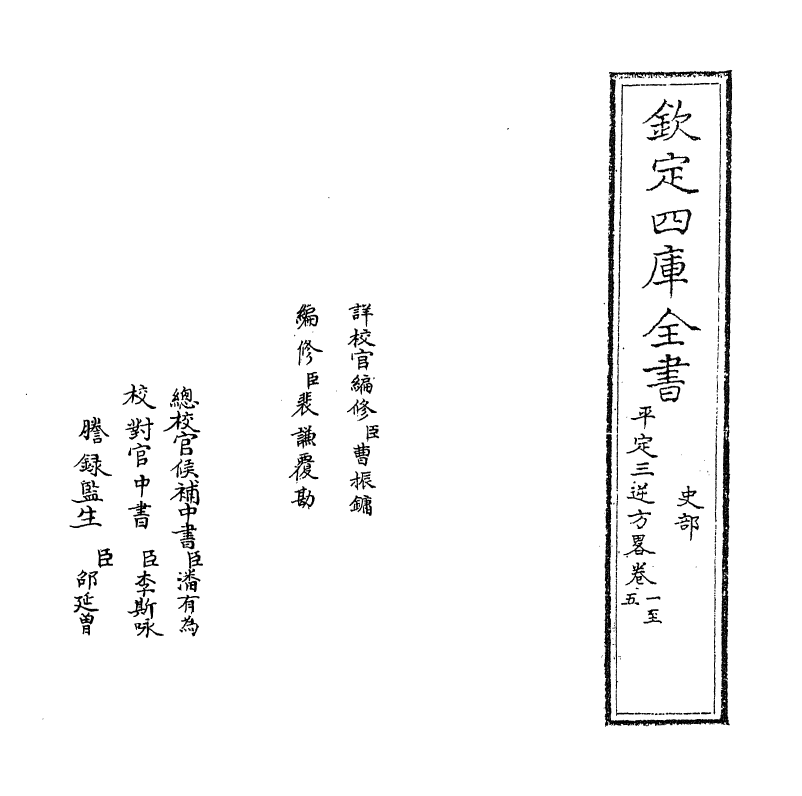 欽定四庫全書
史部
平定三逆方畧卷一至五
詳校官編修臣曹振鏞
編修臣裴謙覆勘
總校官候補中書臣潘有為
校對官中書臣李斯咏
謄録監生臣邵延曽